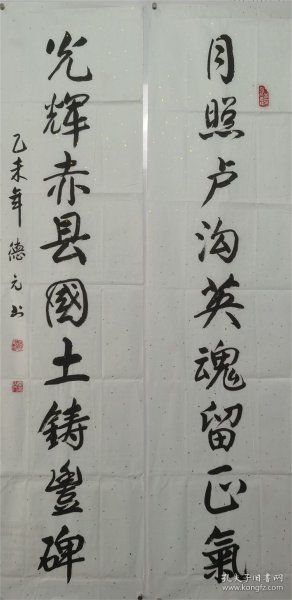 月照卢沟英魂留正氣
光輝赤县國土鑄豐碑
乙未年 德元书
孔夫子旧书网